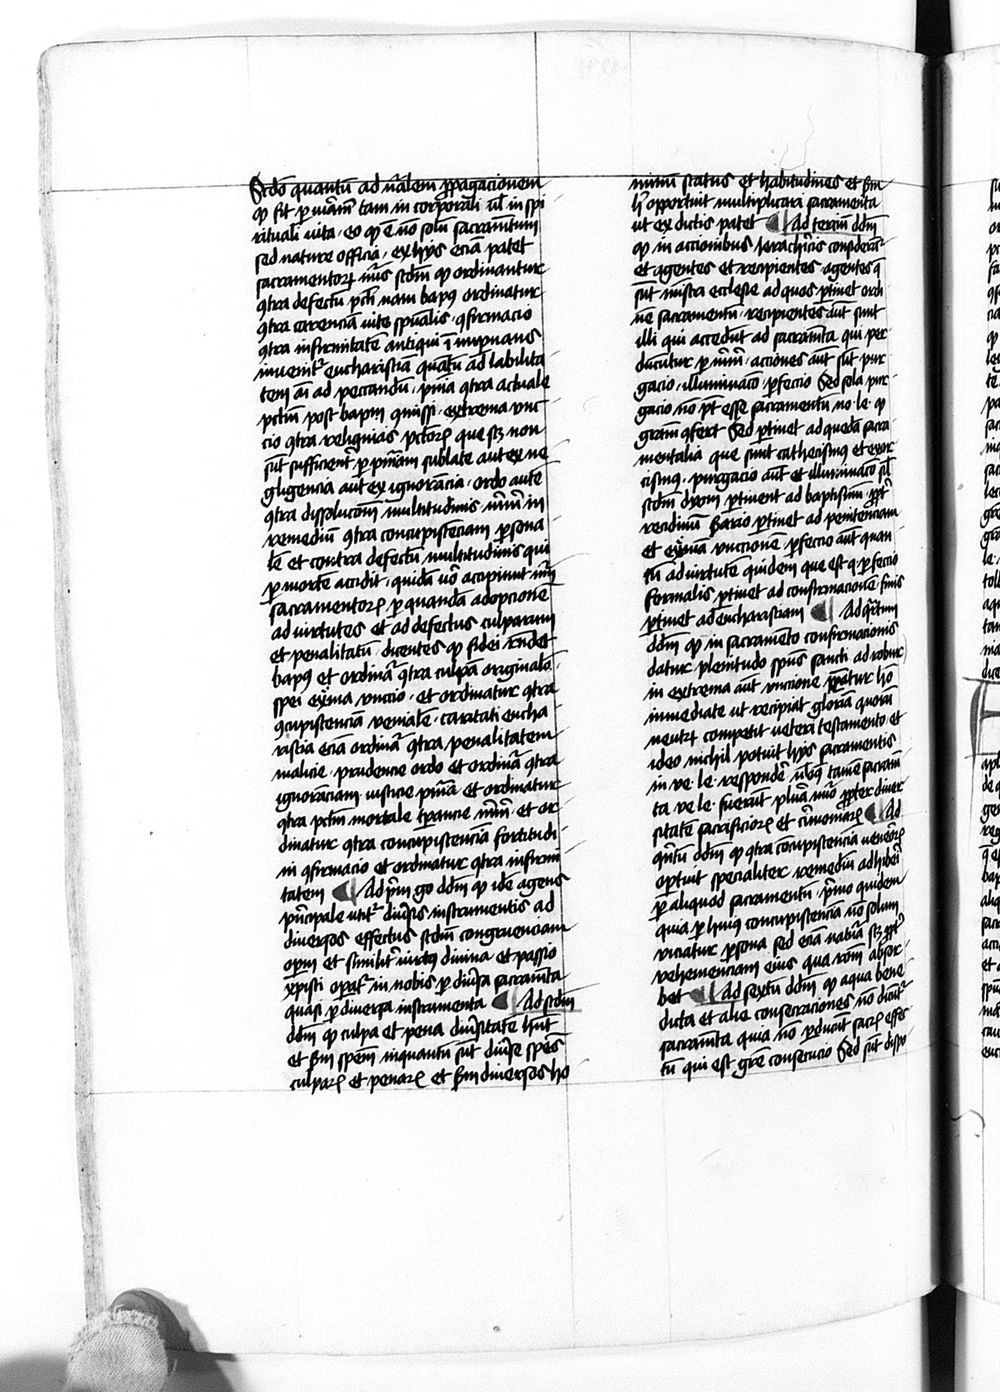 Scdo quantu ad nalem ppagacionem
qd fit p mam tam in corporali ul in spi
rituali uita eo qd e no solu sacramtum
sed nature officia ex hys ecia patet
sacramentor nus scdm qd ordinantur
9tra defectu pcti nam bap9 ordinatur
9tra carencia uite spualis 9firmacio
9tra infirmitate antiqui
inuenit eucharistia quatu ad labilita
tem ai ad peccandu pnia 9tra actuale
pctm post bapm extrema unc
cio 9tra reliquias pctor que sz non
sut sufficient p pniam sublate aut ex ne
gligencia aut ex ignoracia ordo aute
9tra dissolucom multitudinis mrm in
remediu 9tra concupistenciam psona
le et contra defectu multitudinis qui
p morte accidit quida uo accipiunt
sacramentor p quanda adopcione
ad uirtutes et ad defectus culparum
et penalitatu dicentes qd fidei rndet
bap9 et ordina 9tra culpa originale
spei exma unctio et ordinatur 9tra
9cupistencia veniale caritati eucha
ristia ecia ordina 9tra penalitatem
malicie prudencie ordo et ordina 9tra
ignoranciam iusticie pnia et ordinatur
9tra pctm mortale tpancie mrm et or
dinatur 9tra concupistencia fortitudi
ni 9firmacio et ordinatur 9tra infirmi
tatem Ad pm go ddm qd ide agens
pncipale utit diusis instrumentis ad
diuersos effectus scdm congruenciam
opm et similit uirtus diuina et passio
xpisti opat in nobis p diusa sacramta
quasi p diuersa instrumenta Ad scdm
ddm qd culpa et pena diusitate hnt
et scdm spem inquantu sut diuse spes
culpar et penar et scdm diuersos ho
minu status et habitudines et scdm
h oportuit multiplicari sacramenta
ut ex dictis patet Ad terciu ddm
qd in accionibus ierarchicis considerat
et agentes et recipientes agentes
sut mistra ecclesie ad quos ptinet ordi
ne sacramentu recipientes aut sunt
illi qui accedut ad sacramta qui per
ducutur p mrm acciones aut sut pur
gacio illuminaco pfeccio Sed sola pur
gacio no pt esse sacramentu no le qd
gram 9fert Sed ptinet ad queda sacra
mentalia que sunt cathecismus et exor
cismus purgacio aut et illuminaco sil
scdm dyon ptinent ad baptismu ppt
recidiuu scdario ptinet ad penitenciam
et exma unccione pfeccio aut quan
tu ad uirtute quidem que est q pfeccio
formalis ptinet ad confirmacione finis
ptinet ad eucharistiam Ad qrtum
ddm qd in sacramento confirmacionis
datur plenitudo spus sancti ad robur
in extrema aut unccione ppatur ho
inmediate ut recipiat gloria quoru
neutru competit veteri testamento et
ideo nichil potuit hys sacramentis
in ve le responde tame sacram
ta ve le fuerut plura propter diuer
sitate sacrificior et cimoniar Ad
qntu ddm qd 9tra concupistencia veneror
oportuit specialiter remediu adhiberi
p aliquod sacramentu primo quidem
quia p huius concupistencia no solum
viciatur psona sed ecia natura sz ppt
vehemenciam eius qua rom absor
bet Ad sextu ddm qd aqua bene
dicta et alie consecraciones no dicut
sacramta quia no pducut sacr effec
tu qui est gre consecucio Sed sut dispo